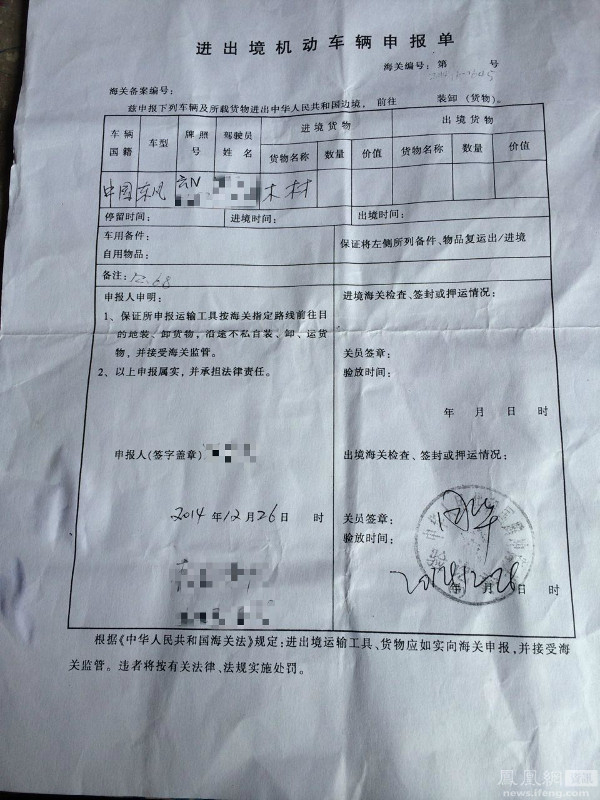 进出境机动车辆申报单
海关编号：第 号
海关备案编号：
兹申报下列车辆及所载货物进出中华人民共和国边境，前往 装卸（货物）。
车辆国籍 车型 牌照号 驾驶员姓名 进境货物 出境货物
货物名称 数量 价值 货物名称 数量 价值
中国 东风 云N 木材
停留时间： 进境时间： 出境时间：
车用备件：
自用物品：
保证将左侧所列备件、物品复运出/进境
备注：12.68
申报人申明：
1、保证所申报运输工具按海关指定路线前往目
的地装、卸货物，沿途不私自装，卸、运货
物，并接受海关监管。
2、以上申报属实，并承担法律责任。
申报人(签字盖章)
2014年12月26日 时
进境海关检查、签封或押运情况：
关员签章：
验放时间：
年 月 日 时
出境海关检查、签封或押运情况：
关员签章：
验放时间：
年 月 日 时
根据《中华人民共和国海关法》规定：进出境运输工具、货物应如实向海关申报，并接受海
关监管。违者将按有关法律、法规实施处罚。
鳳凰網
news.ifeng.com